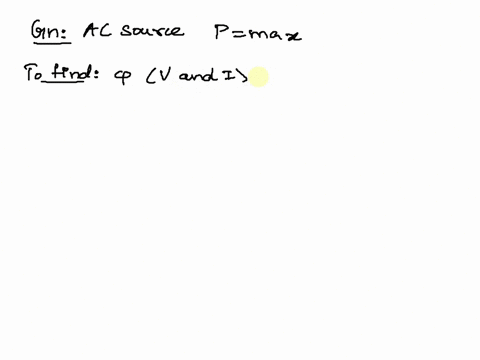 Gn: AC source P=max
To find: φ (V and I)